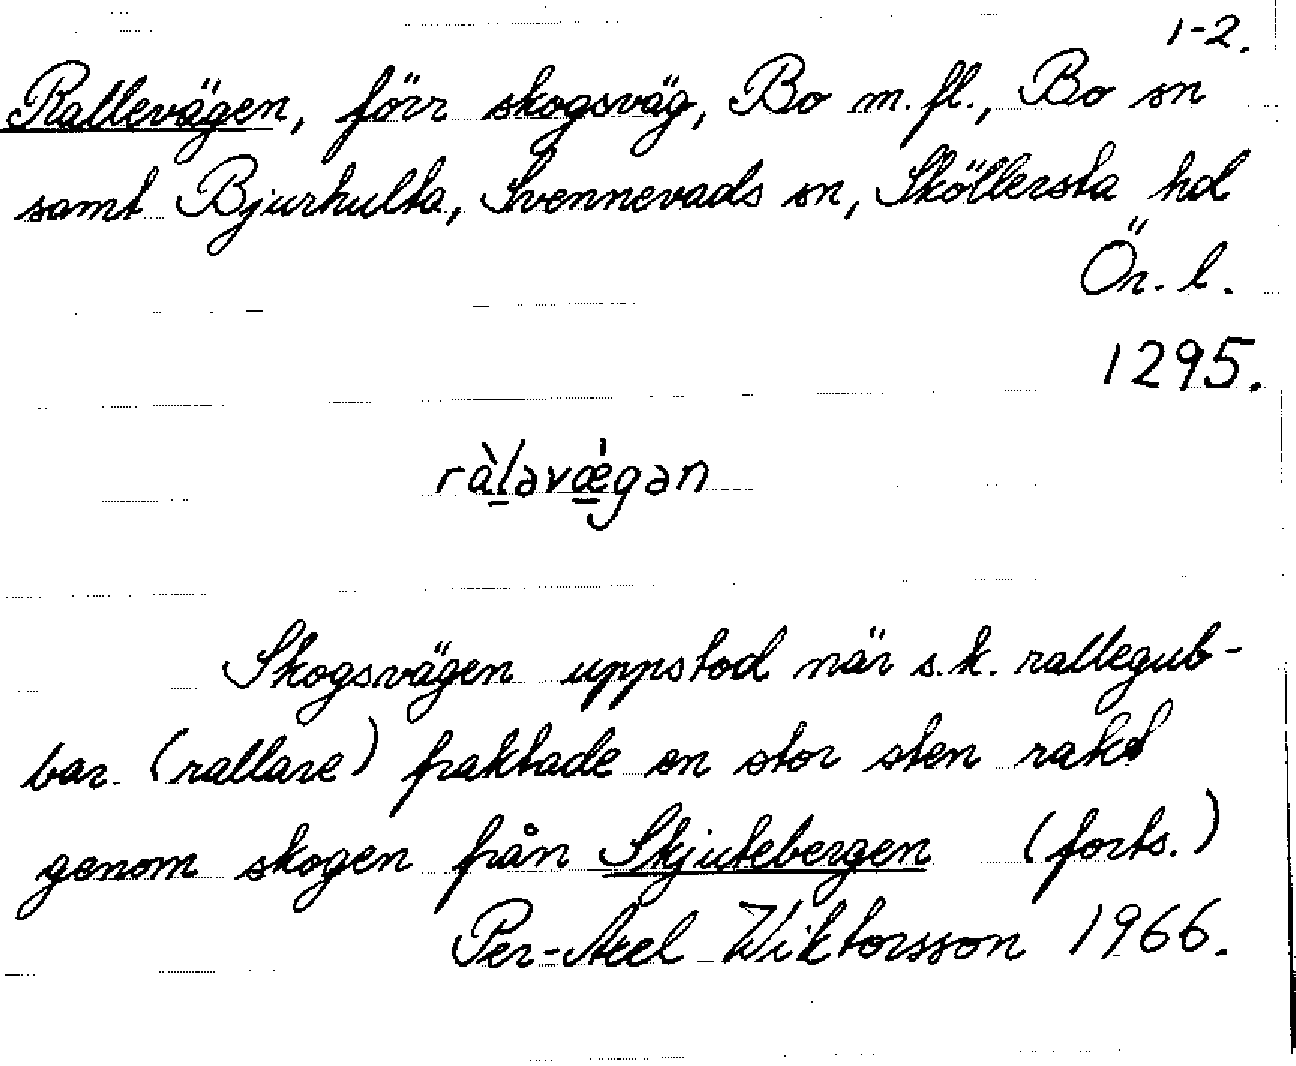 1-2.
Rallevägen, förr skogsväg, Bo m.fl., Bo sn
samt Bjurhulta, Svennevads sn, Sköllersta hd
Ör. l.
1295.
ràl̠əvǽ̠gən
Skogsvägen uppstod när s.k. rallegub-
bar (rallare) fraktade en stor sten rakt
genom skogen från Skjutebergen (forts.)
Per-Axel Wiktorsson 1966.